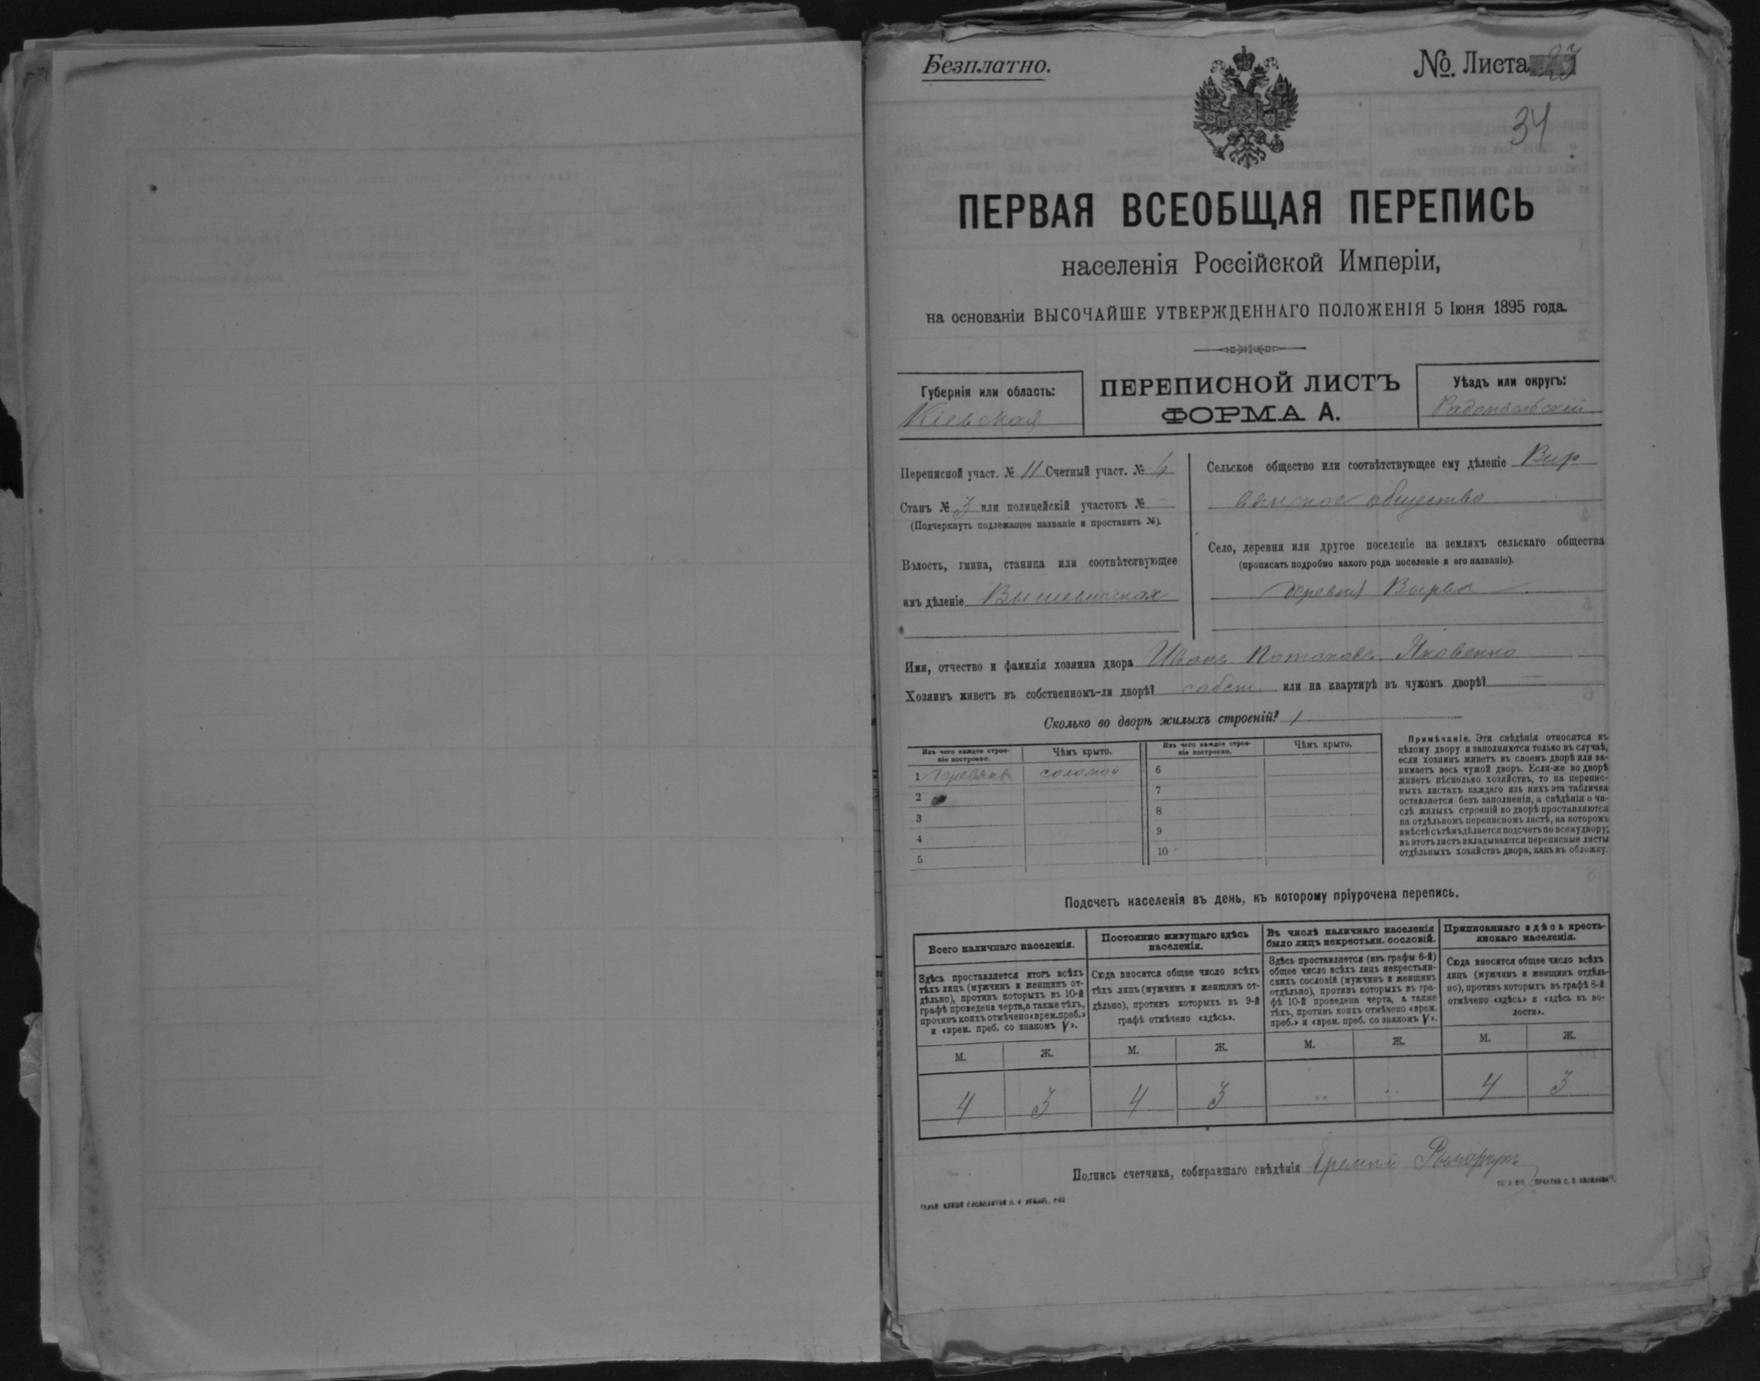 Безплатно.
№ Листа 23
34
ПЕРВАЯ ВСЕОБЩАЯ ПЕРЕПИСЬ
населенія Россійской Имперіи,
на основаніи ВЫСОЧАЙШЕ УТВЕРЖДЕННАГО ПОЛОЖЕНІЯ 5 Іюня 1895 года.
Губернія или область:
Кіевская
ПЕРЕПИСНОЙ ЛИСТЪ
ФОРМА А.
Уѣздъ или округъ:
Радомысльскій
Переписной участ. № 11 Счетный участ. № 6
Станъ № 3 или полицейскій участокъ № —
(Подчеркнуть подлежащее названіе и проставить №).
Волость, гмина, станица или соотвѣтствующее
имъ дѣленіе Вышевичская
Сельское общество или соотвѣтствующее ему дѣленіе Выр
общество
Село, деревня или другое поселеніе на земляхъ сельскаго общества
(прописать подробно какого рода поселеніе и его названіе).
деревня Вырва
Имя, отчество и фамилія хозяина двора Иванъ Потаповъ Яковенко
Хозяинъ живетъ въ собственномъ-ли дворѣ? собст. или на квартирѣ въ чужомъ дворѣ? —
Сколько во дворѣ жилыхъ строеній? 1
Изъ чего каждое строе-
ніе построено.
Чѣмъ крыто.
Изъ чего каждое строе-
ніе построено.
Чѣмъ крыто.
1 соломой
2
3
4
5
6
7
8
9
10
Примѣчаніе. Эти свѣдѣнія относятся къ
цѣлому двору и заполняются только въ случаѣ,
если хозяинъ живетъ въ своемъ дворѣ или за-
нимаетъ весь чужой дворъ. Если-же во дворѣ
живетъ нѣсколько хозяйствъ, то на перепис-
ныхъ листахъ каждаго изъ нихъ эта табличка
оставляется безъ заполненія, а свѣдѣнія о чи-
слѣ жилыхъ строеній во дворѣ проставляются
на отдѣльномъ переписномъ листѣ, на которомъ
вмѣстѣ съ тѣмъ дѣлается подсчетъ по всему двору;
въ этотъ листъ вкладываются переписные листы
отдѣльныхъ хозяйствъ двора, какъ въ обложку.
Подсчетъ населенія въ день, къ которому пріурочена перепись.
Всего наличнаго населенія.
Здѣсь проставляется итогъ всѣхъ
тѣхъ лицъ (мужчинъ и женщинъ от-
дѣльно), противъ которыхъ въ 10-й
графѣ проведена черта, а также тѣхъ,
противъ коихъ отмѣчено «врем. преб.»
и «врем. преб. со знакомъ V».
Постоянно живущаго здѣсь
населенія.
Сюда вносится общее число всѣхъ
тѣхъ лицъ (мужчинъ и женщинъ от-
дѣльно), противъ которыхъ въ 9-й
графѣ отмѣчено «здѣсь».
Въ числѣ наличнаго населенія
было лицъ некрестьян. сословій.
Здѣсь проставляется (изъ графы 6-й)
общее число всѣхъ лицъ некрестьян-
скихъ сословій (мужчинъ и женщинъ
отдѣльно), противъ которыхъ въ гра-
фѣ 10-й проведена черта, а также
тѣхъ, противъ коихъ отмѣчено «врем.
преб.» и «врем. преб. со знакомъ V».
Приписаннаго здѣсь кресть-
янскаго населенія.
Сюда вносится общее число всѣхъ
лицъ (мужчинъ и женщинъ отдѣль-
но), противъ которыхъ въ графѣ 8-й
отмѣчено «здѣсь» и «здѣсь въ во-
лости».
М. Ж. М. Ж. М. Ж. М. Ж.
4 3 4 3 .. .. 4 3
Подпись счетчика, собиравшаго свѣдѣнія